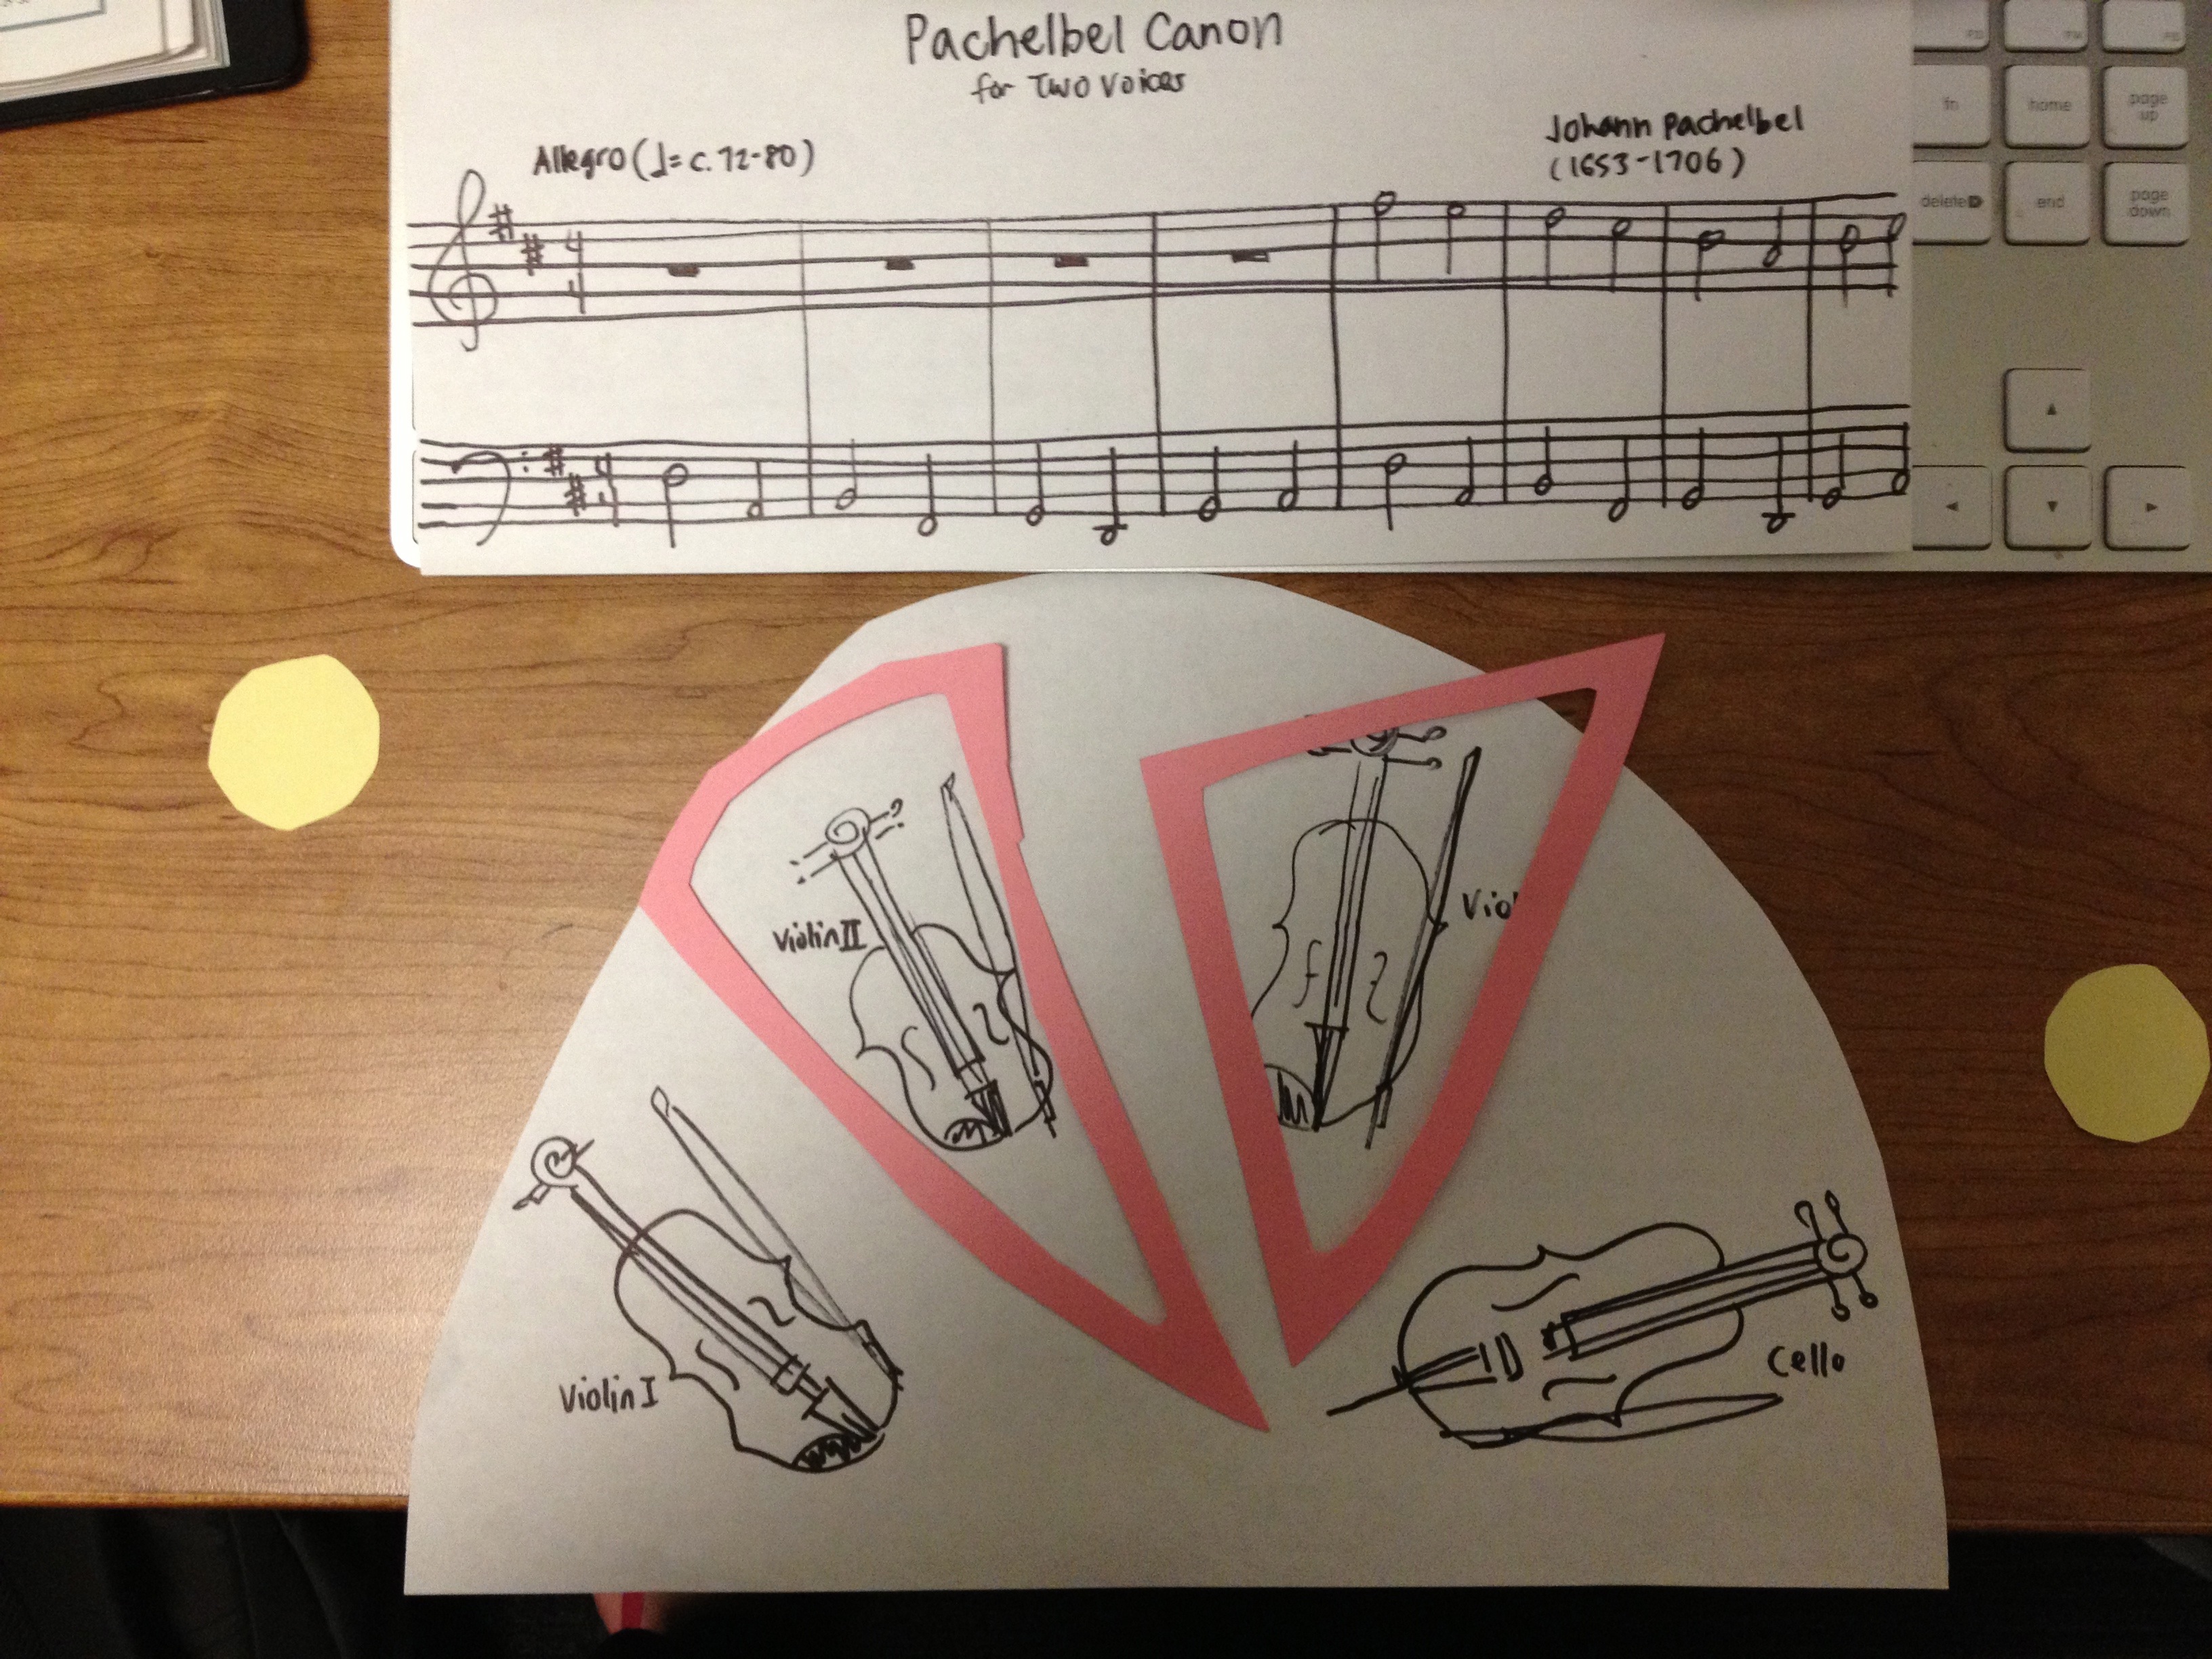 Pachelbel Canon
for Two Voices
Allegro (♩= c. 72-80)
Johann Pachelbel
(1653-1706)
4
4
4
4
fn
home
page up
delete
end
page down
Violin II
Viol
Violin I
Cello